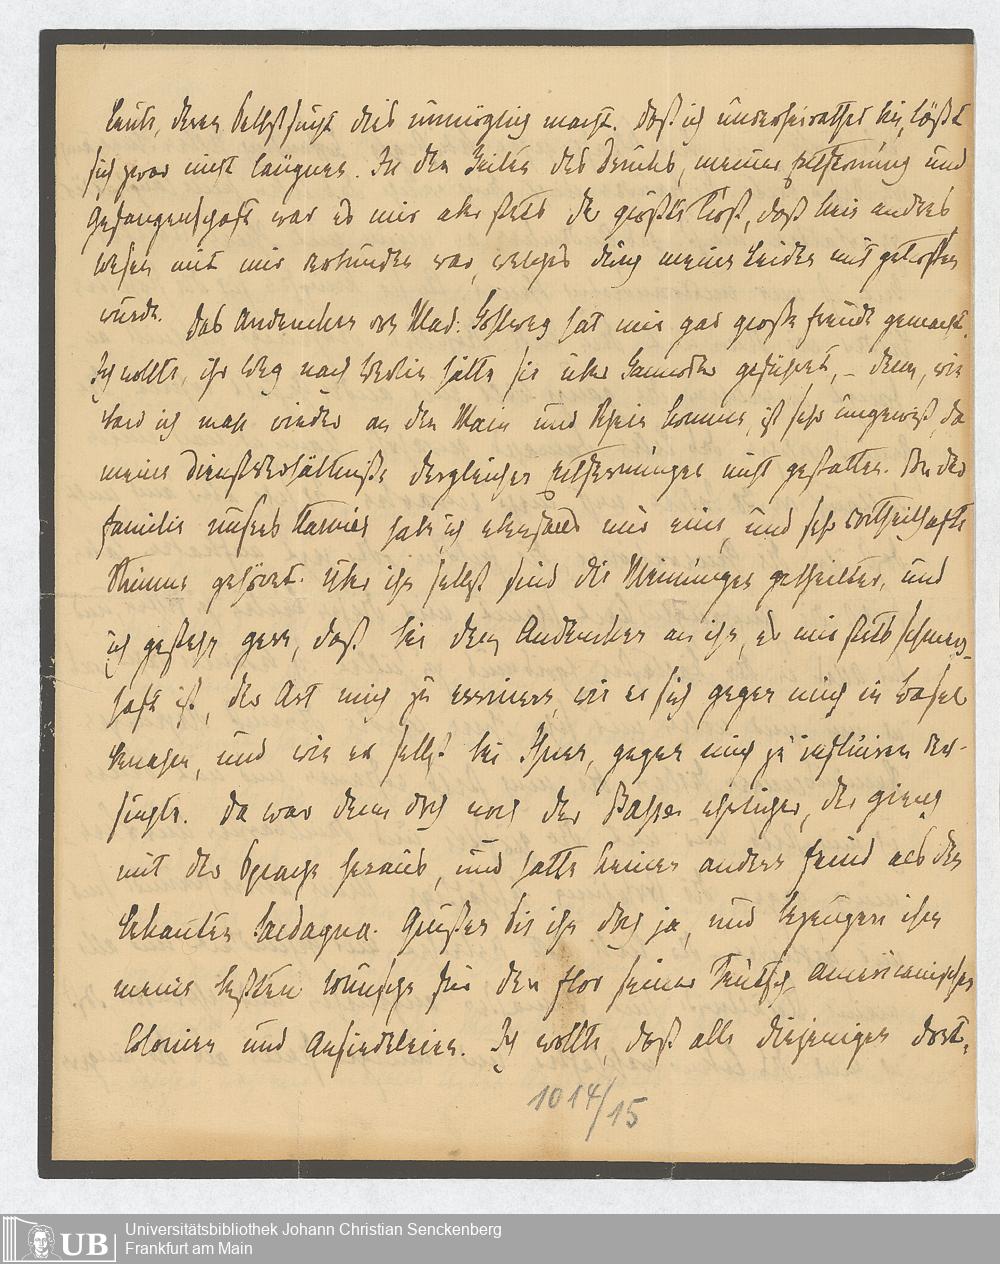 Leute, deren Selbstsucht dies unmöglich macht. Daß ich unverheirathet bin, läßt
sich zwar nicht läugnen. In den Zeiten des Drucks, meiner Entfernung und
Gefangenschaft war es mir aber stets der größte Trost, daß kein anderes
Wesen mit mir verbunden war, welches durch meine Leiden mit getroffen
würde. Das Andencken von Mad: hat mir gar große Freude gemacht.
Ich wollte, ihr Weg nach Berlin hätte sie über Hannover geführt, – denn, wie
bald ich mahl wieder an den Main und Rhein komme, ist sehr ungewiß, da
meine Dienstverhältniße dergleichen Entfernungen nicht gestatten. Von der
Familie unsres habe ich ebenfalls nur eine, und sehr vortheilhafte
Stimme gehöret. Über ihn selbst sind die Meinungen getheilter, und
ich gestehe gern, daß bei dem Andencken an ihn, es mir stets schmerz-
haft ist, der Art mich zu erinnern, wie er sich gegen mich in Basel
benahm, und wie er selbst bei Ihnen, gegen mich zu influiren ver-
suchte. Da war denn doch noch der ehrlicher, der gieng
mit der Sprache heraus, und hatte keinen andern Feind als den
bekannten. Grüßen Sie ihn doch ja, und bezeugen ihm
meine besten Wünsche für den Flor seiner Teutsch americanischen
Colonien und Ansiedeleien. Ich wollte, daß alle diejenigen dort,
1014/15
Universitätsbibliothek Johann Christian Senckenberg
Frankfurt am Main
UB